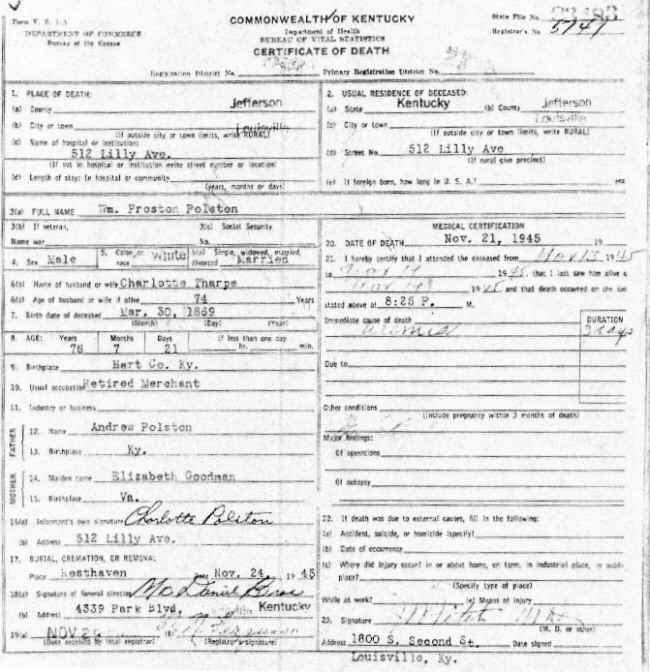 Form V. S. 1-A
DEPARTMENT OF COMMERCE
Bureau of the Census
COMMONWEALTH OF KENTUCKY
Department of Health
BUREAU OF VITAL STATISTICS
CERTIFICATE OF DEATH
State File No.
Registrar's No. 5747
Registration District No.
Primary Registration District No.
1. PLACE OF DEATH:
(a) County Jefferson
(b) City or town Louisville
(If outside city or town limits, write RURAL)
(c) Name of hospital or institution:
512 Lilly Ave.
(If not in hospital or institution write street number or location)
(d) Length of stay: In hospital or community
(years, months or days)
2. USUAL RESIDENCE OF DECEASED:
(a) State Kentucky (b) County Jefferson
(c) City or town Louisville
(If outside city or town limits, write RURAL)
(d) Street No. 512 Lilly Ave
(If rural give precinct)
(e) If foreign born, how long in U. S. A.?
3(a) FULL NAME Wm. Proston Polston
3(b) If veteran,
Name war
3(c) Social Security
No.
4. Sex Male 5. Color or race White 6(a) Single, widowed, married, divorced Married
6(b) Name of husband or wife Charlotte Tharpe
6(c) Age of husband or wife if alive 74 Years
7. Birth date of deceased Mar. 30, 1869
(Month) (Day) (Year)
8. AGE: Years Months Days If less than one day
76 7 21 hr. min.
9. Birthplace Hart Co. Ky.
10. Usual occupation Retired Merchant
11. Industry or business
FATHER
12. Name Andrew Polston
13. Birthplace Ky.
MOTHER
14. Maiden name Elizabeth Goodman
15. Birthplace Va.
16(a) Informant's own signature Charlotte Polston
(b) Address 512 Lilly Ave.
17. BURIAL, CREMATION, OR REMOVAL
Place Resthaven Date Nov. 24, 1945
18(a) Signature of funeral director Mc Daniel Bros
(b) Address 4339 Park Blvd, Kentucky
19(a) NOV
(Date received by local registrar) (Registrar's signature)
MEDICAL CERTIFICATION
20. DATE OF DEATH Nov. 21, 1945 19
21. I hereby certify that I attended the deceased from Nov 13 1945
to Nov 1945, that I last saw him alive
Nov 1945 and that death occurred on the
stated above at 8:25 P. M.
Immediate cause of death
Uremia
DURATION
3 days
Due to
Other conditions
(Include pregnancy within 3 months of death)
Major findings:
Of operations
Of autopsy
22. If death was due to external causes, fill in the following:
(a) Accident, suicide, or homicide (specify)
(b) Date of occurrence
(c) Where did injury occur? in or about home, on farm, in industrial place, in public
place?
(Specify type of place)
While at work? (e) Means of injury
23. Signature
(M. D. or other)
Address 1800 S. Second St. Date signed
Louisville, Ky.